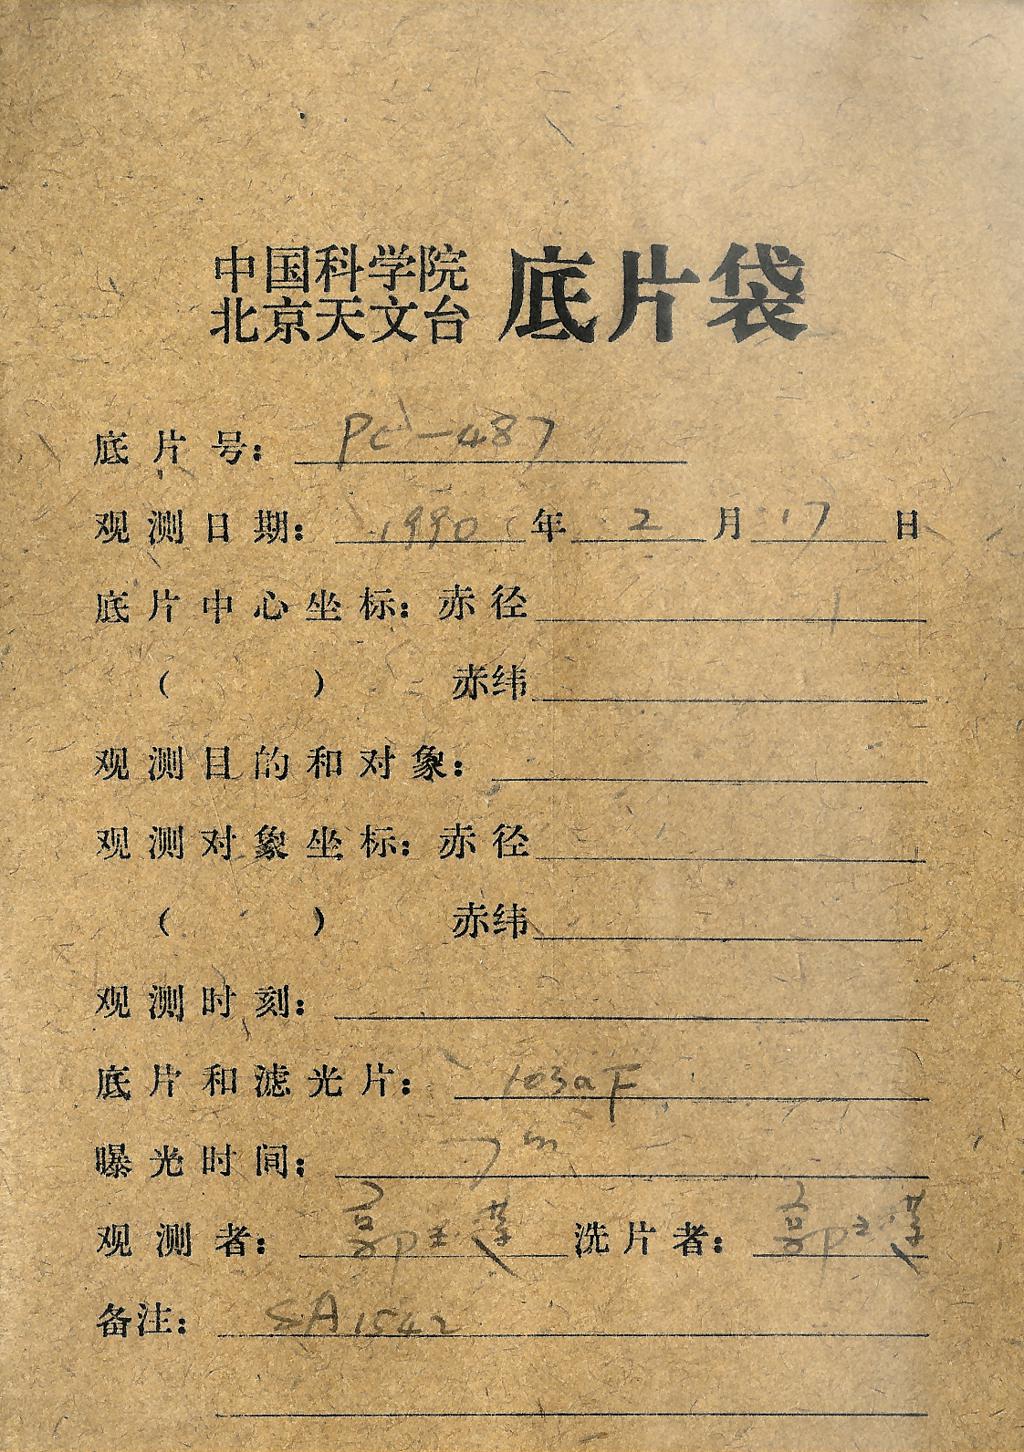 中国科学院
北京天文台 底片袋
底片号: PC-487
观测日期: 1990年 2 月 17 日
底片中心坐标: 赤径
( ) 赤纬
观测目的和对象:
观测对象坐标: 赤径
( ) 赤纬
观测时刻:
底片和滤光片: 103aF
曝光时间: 7m
观测者: 郭玉莲 洗片者: 郭玉莲
备注: SA1542